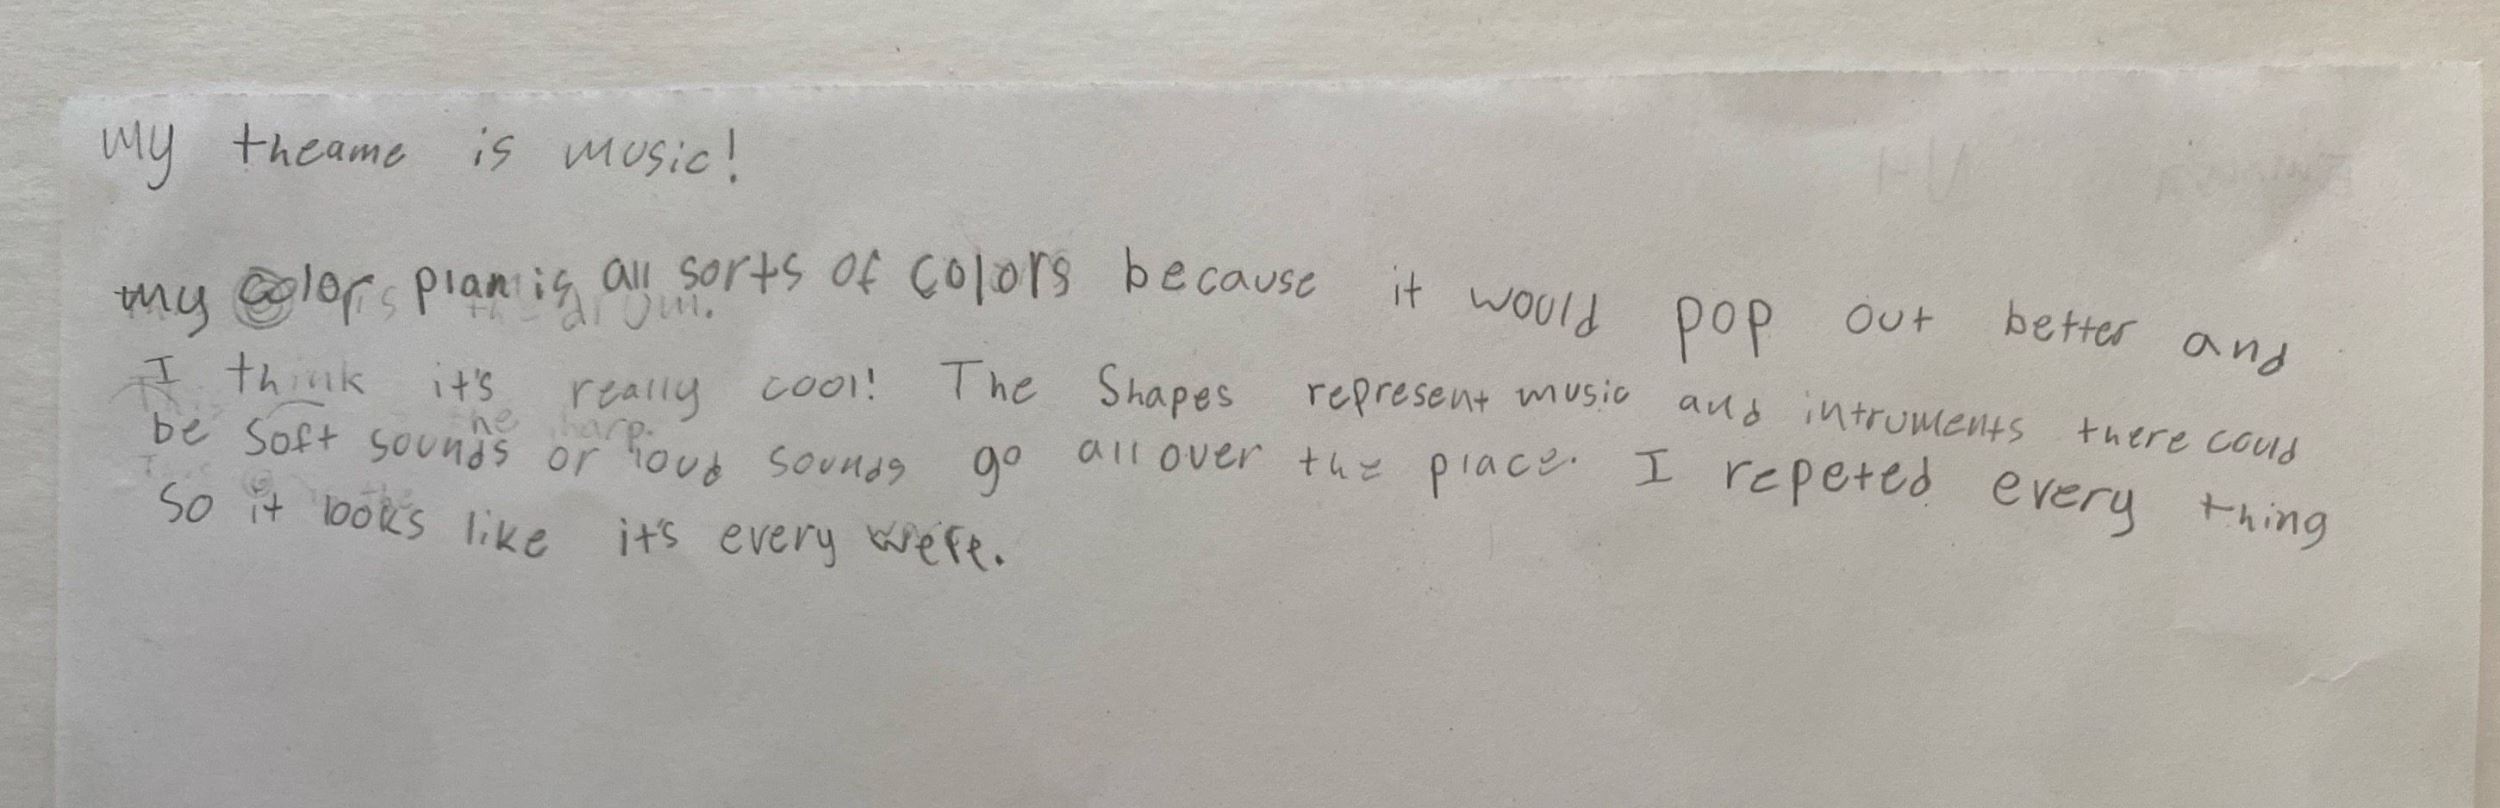 My theame is music!
my color plan is all sorts of colors because it would pop out better and
I think it's really cool! The Shapes represent music and intruments there could
be soft sounds or loud sounds go all over the place. I repeted every thing
so it looks like it's every were.